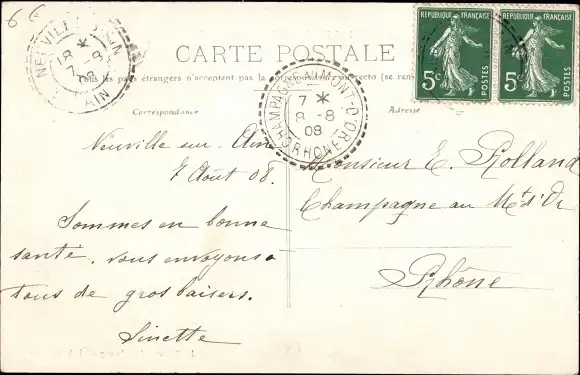 66
NEUVILLE
AIN
18 * 8-9
7 08
CARTE POSTALE
les pays étrangers n'acceptent pas la correspondance au recto (se ren
REPUBLIQUE FRANÇAISE
5c POSTES
REPUBLIQUE FRANÇAISE
5c POSTES
CHAMPAGNE AU MONT-D'OR
RHONE
7 *
8 -8
08
Correspondance
Adresse
Neuville sur Ain
7 Août 08.
Sommes en bonne
santé, vous envoyons
tous de gros baisers.
Sinette
Monsieur E. Rolland
Champagne au Mt d'Or
Rhône